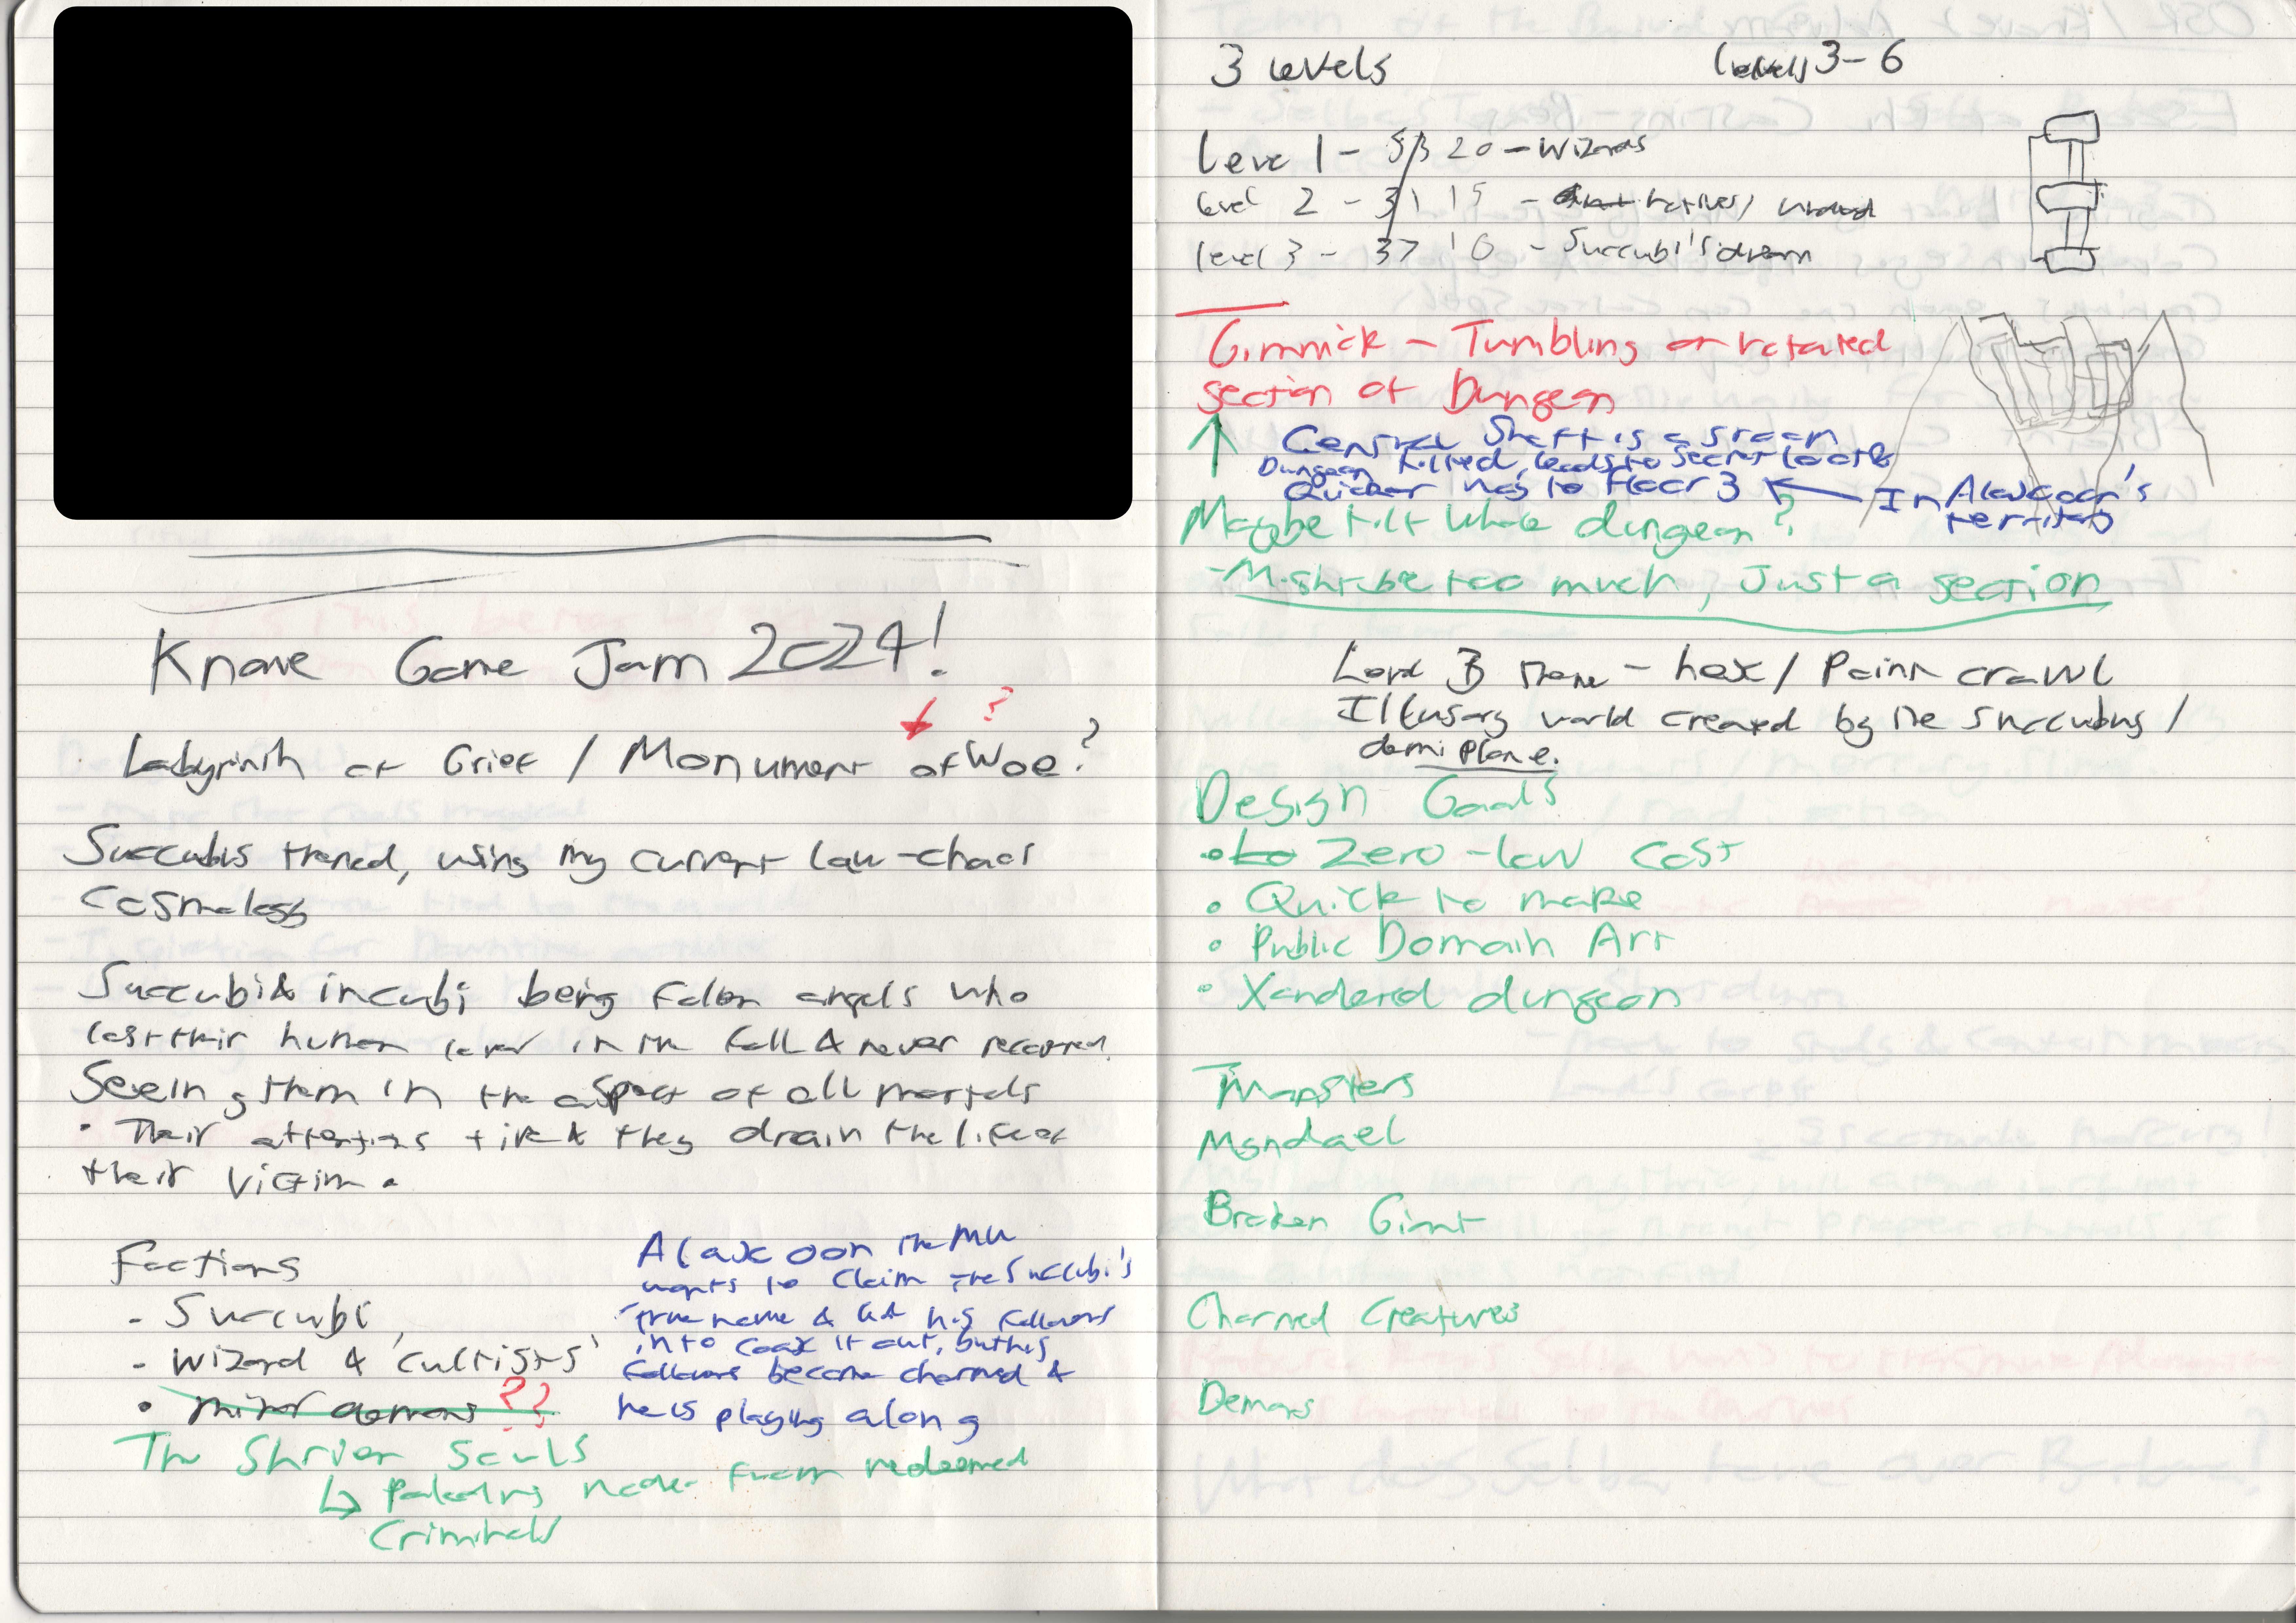 Knave Game Jam 2024!
?
Labyrinth of Grief / Monument of Woe?
Succubus themed, using my current law-chaos
cosmology
Succubi & incubi being fallen angels who
lost their human lover in the fall & never recovered.
Seeing them in the aspect of all mortals
• Their attentions tire & they drain the life of
their victim.
Factions
- Succubi
- Wizard & 'cultists'
• minor demons ??
The Shriven Souls
↳ Paladins made from redeemed
Criminals
Alaxcoor the MU
wants to claim the Succubi's
true name & led his followers
into coax it out, but his
followers become charmed &
he is playing along
3 levels
levels 3-6
Level 1 - 20 - Wizards
level 2 - 31 15 - natives/ undead
level 3 - 37 10 - Succubi's dream
Gimmick - Tumbling or rotated
section of Dungeon
Central Shaft is a
Dungeon tilted, leads to secret
Quicker way to floor 3 ← In Alaxcoor's
territory
Maybe tilt whole dungeon?
- Might be too much, Just a section
Level 3 theme - hex / Point crawl
Illusory world created by the succubus /
demi plane.
Design Goals
• Lo Zero-low cost
• Quick to make
• Public Domain Art
• Xandered dungeon
Monsters
Mondael
Broken Giant
Charmed Creatures
Demons